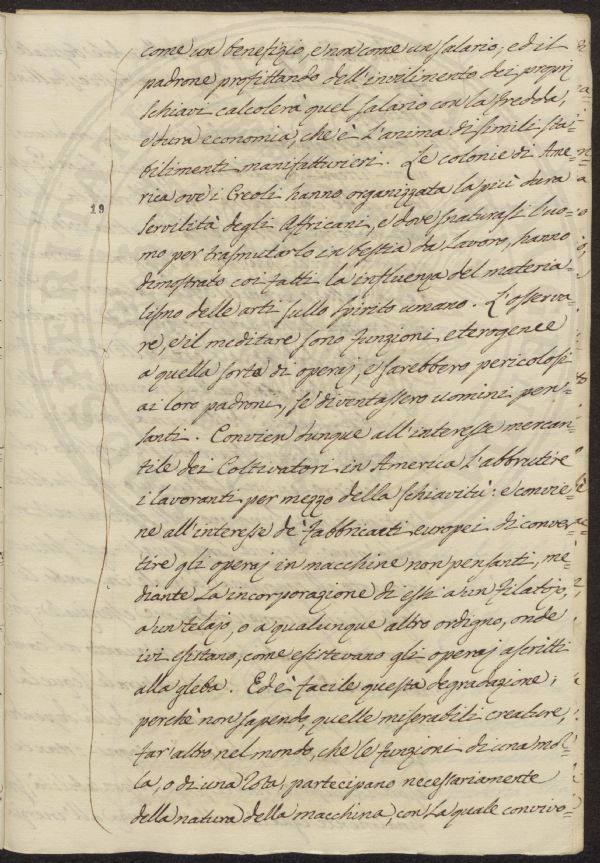 come un benefizio, e non come un salario; ed il
padrone profittando dell'invilimento dei proprj
schiavi calcolerà quel salario con la fredda,
e dura economia, che è l'anima di simili sta-
bilimenti manifatturieri. Le colonie di Ame-
rica ove i Creoli hanno organizzata la più dura
19
servilità degli Affricani, e dove snaturasi l'uo-
mo per trasmutarlo in bestia da lavoro, hanno
dimostrato coi fatti la influenza del materia-
lismo delle arti sullo spirito umano. L'osserva-
re, e il meditare sono funzioni eterogenee
a quella sorta di operaj, e sarebbero pericolosi
ai loro padroni, se diventassero uomini pen-
santi. Convien dunque all'interesse mercan-
tile dei Coltivatori in America l'abbrutire
i lavoranti per mezzo della schiavitù: e convie-
ne all'interesse de' fabbricanti europei di conver-
tire gli operaj in macchine non pensanti, me-
diante la incorporazione di essi a un filatojo,
a un telajo, o a qualunque altro ordigno, onde
ivi esistano, come esistevano gli operaj ascritti
alla gleba. Ed è facile questa degradazione;
perchè non sapendo, quelle miserabili creature,
far altro nel mondo, che le funzioni di una mol-
la, o di una rota; partecipano necessariamente
della natura della macchina, con la quale convivo-